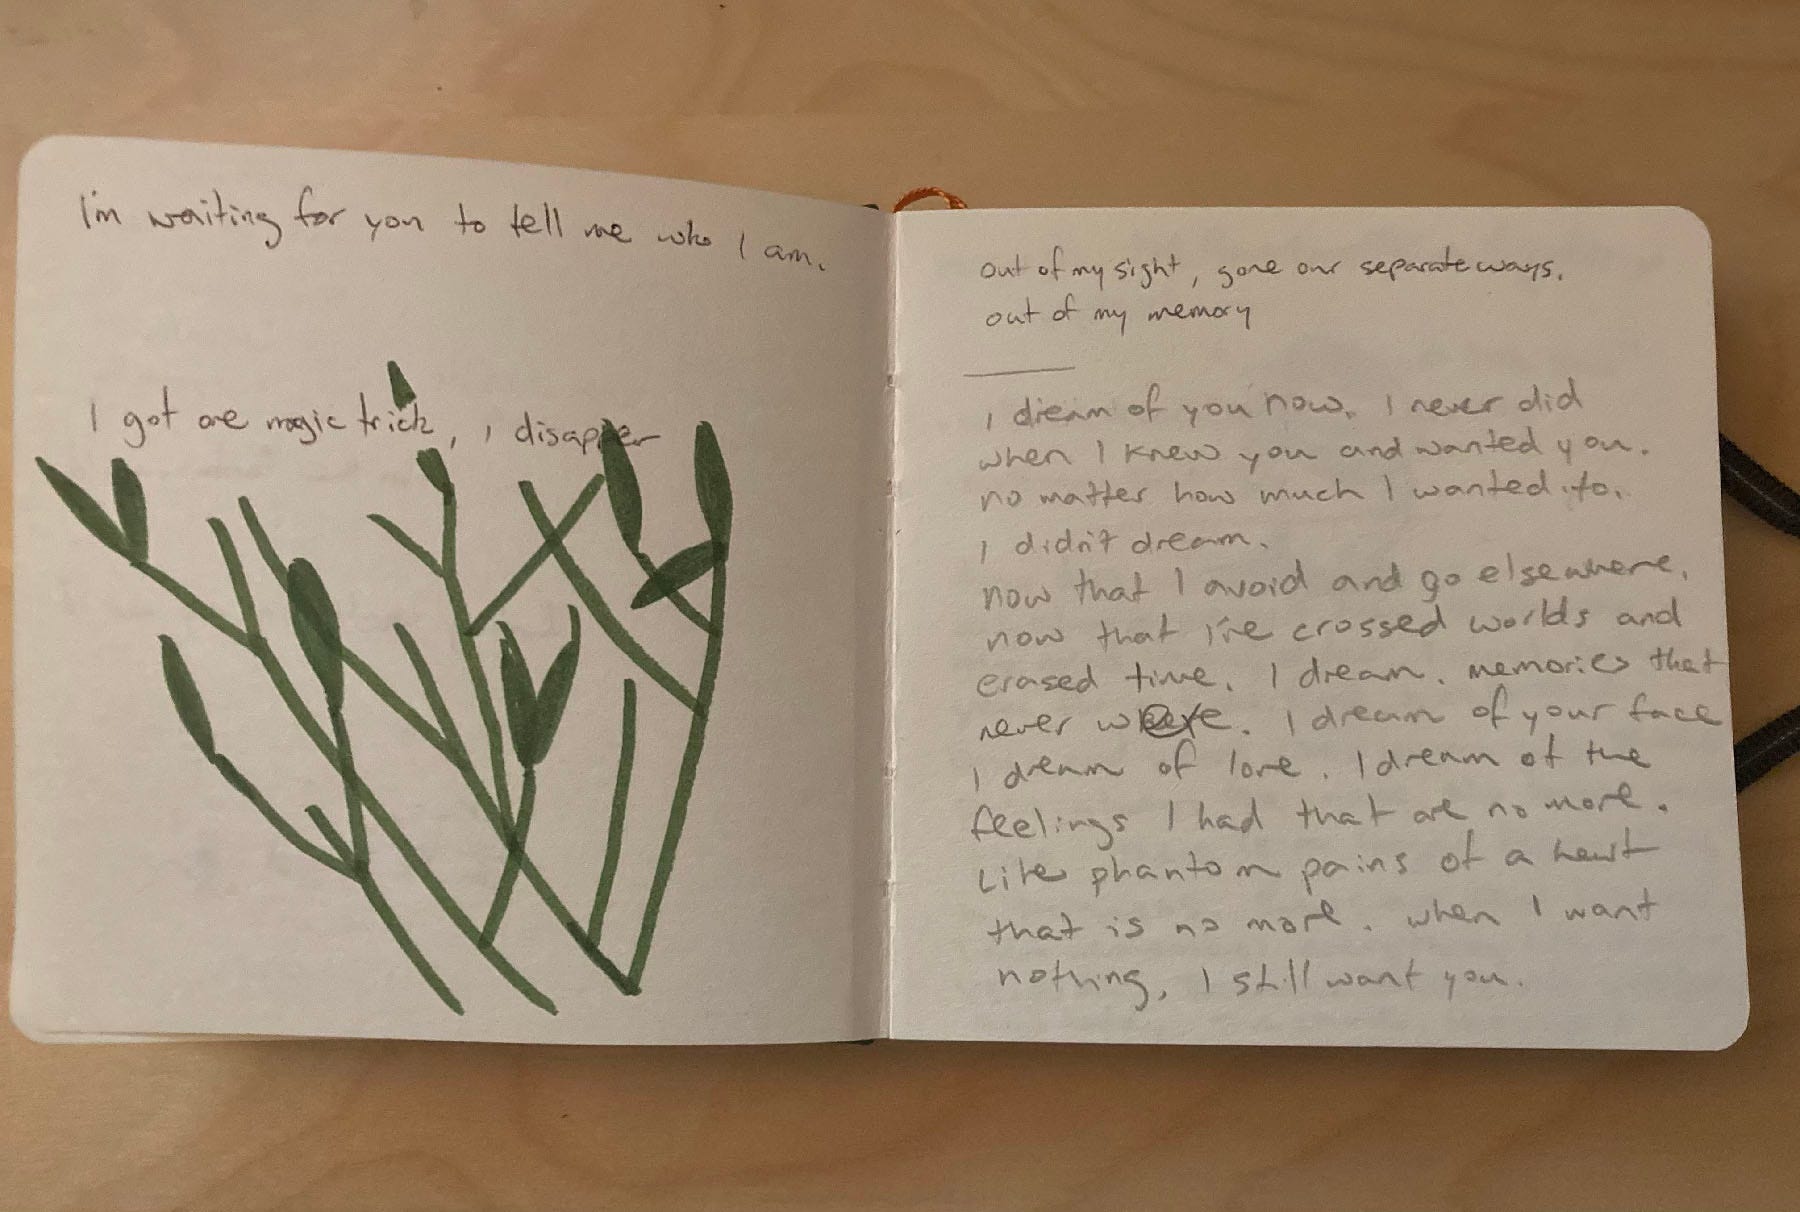 I'm waiting for you to tell me who I am.
I got one magic trick, I disapper
out of my sight, gone our separate ways.
out of my memory
I dream of you now. I never did
when I knew you and wanted you.
no matter how much I wanted to.
I didn't dream.
now that I avoid and go elsewhere.
now that i've crossed worlds and
erased time. I dream. memories that
never were. I dream of your face
I dream of love. I dream of the
feelings I had that are no more.
Like phantom pains of a heart
that is no more. when I want
nothing, I still want you.